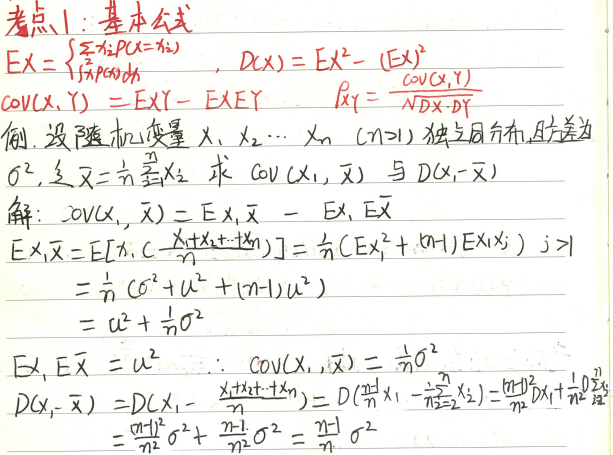 考点1:基本公式
EX = { Σxᵢp(x=xᵢ) ∫xp(x)dx , D(X) = EX² - (EX)²
COV(X,Y) = EXY - EXEY ρxy = COV(X,Y) / √DX·DY
例.设随机变量 X₁ X₂ … Xn (n>1) 独立同分布,且方差为
σ²,令 X̄ = 1/n Σⁿᵢ₌₁Xᵢ 求 COV(X₁, X̄) 与 D(X₁-X̄)
解: COV(X₁, X̄) = EX₁X̄ - EX₁EX̄
EX₁X̄ = E[X₁( (X₁+X₂+…+Xn)/n )] = 1/n (EX₁² + (n-1)EX₁Xⱼ) j>1
= 1/n (σ²+u²+(n-1)u²)
= u² + 1/n σ²
EX₁EX̄ = u² ∴ COV(X₁,X̄) = 1/n σ²
D(X₁-X̄) = D(X₁ - (X₁+X₂+…+Xn)/n) = D((n-1)/n X₁ - 1/n Σⁿᵢ₌₂Xᵢ) = (n-1)²/n² DX₁ + 1/n² DΣⁿᵢ₌₂Xᵢ
= (n-1)²/n² σ² + (n-1)/n² σ² = (n-1)/n σ²